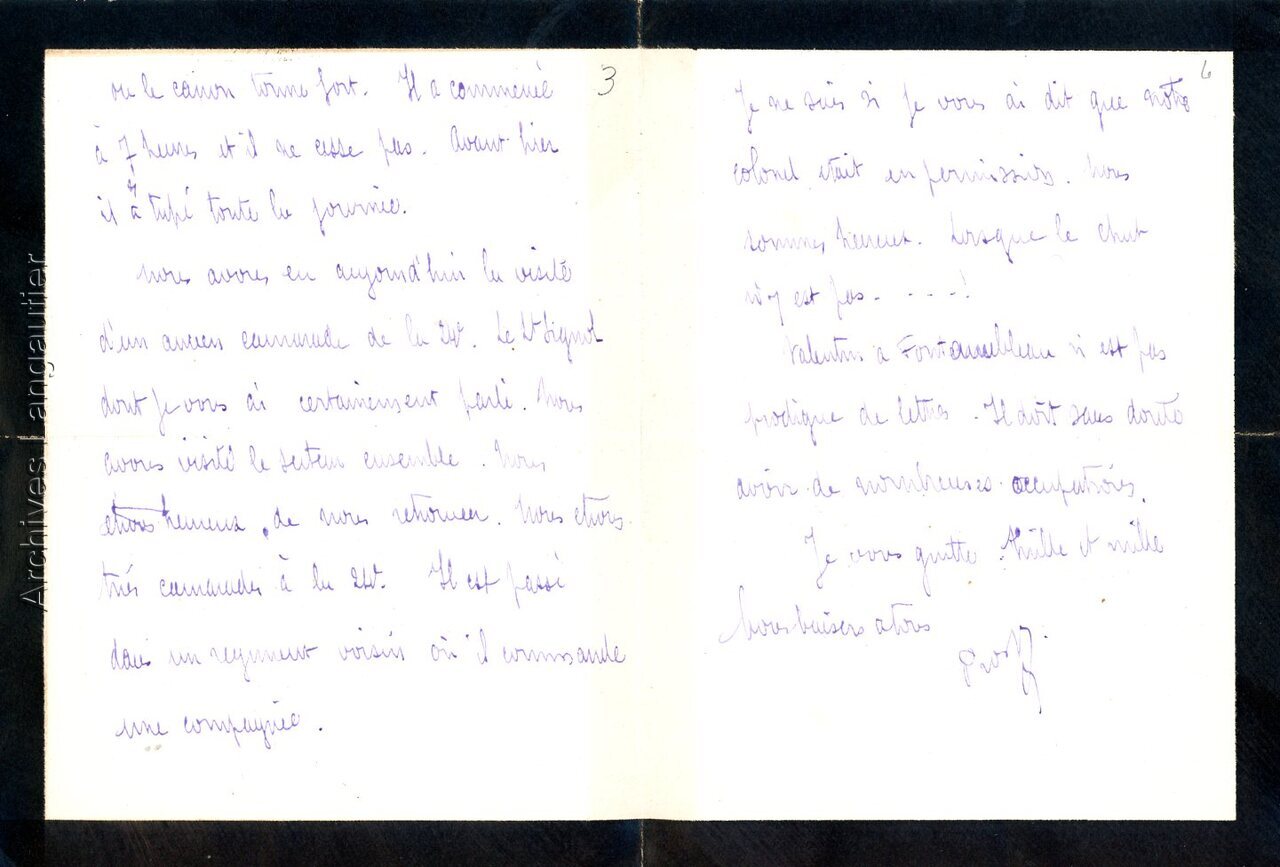 3
ou le canon tonne fort. Il a commencé
à 7 heures et il ne cesse pas. Avant hier
il a tapé toute la journée.
Nous avons eu aujourd'hui la visite
d'un ancien camarade de la 24e. Le Lt Signol
dont je vous ai certainement parlé. Nous
avons visité le secteur ensemble. Nous
etions heureux de nous retrouver. Nous etions
très camarades à la 24e. Il est passé
dans un regiment voisin où il commande
une compagnie.
Je ne sais si je vous ai dit que notre
colonel etait en permission. Nous
sommes heureux. Lorsque le chat
n'y est pas. - - - -!
Valentin a Fontainebleau n'est pas
prodigue de lettres. Il doit sans doute
avoir de nombreuses occupations.
Je vous quitte. Mille et mille
bons baisers a tous
Archives Langautier